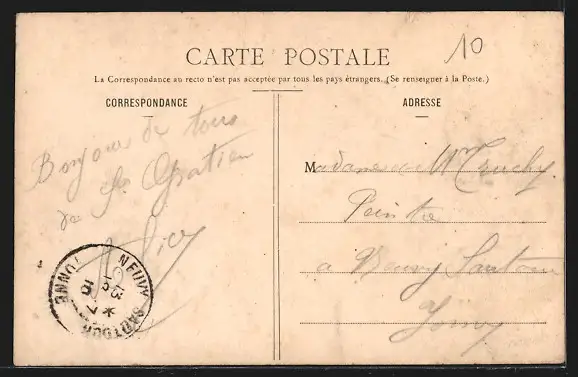 10
CARTE POSTALE
La Correspondance au recto n'est pas acceptée par tous les pays étrangers. (Se renseigner à la Poste.)
CORRESPONDANCE
ADRESSE
Bonjour de tous
de St Gratien
Madame Mr Truchy
Peintre
a Neuvy Sautour
Yonne
NEUVY-SAUTOUR
YONNE